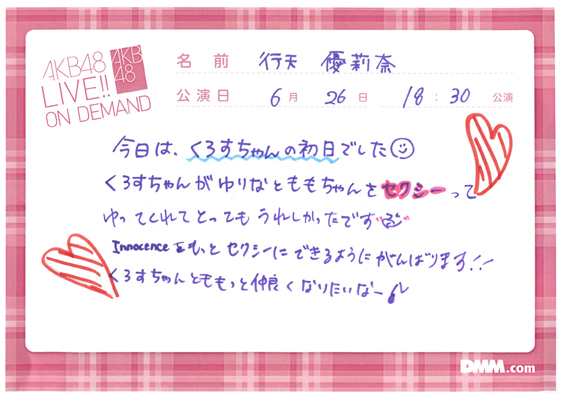 AKB48
LIVE!!
ON DEMAND
AKB
48
名前 行天 優莉奈
公演日 6月 26日 18:30 公演
今日は、くろすちゃんの初日でした☺
くろすちゃんがゆりなとももちゃんをセクシーって
ゆってくれてとってもうれしかったです
Innocenceをもっとセクシーにできるようにがんばります!!
くろすちゃんともっと仲良くなりたいなー♪
DMM.com